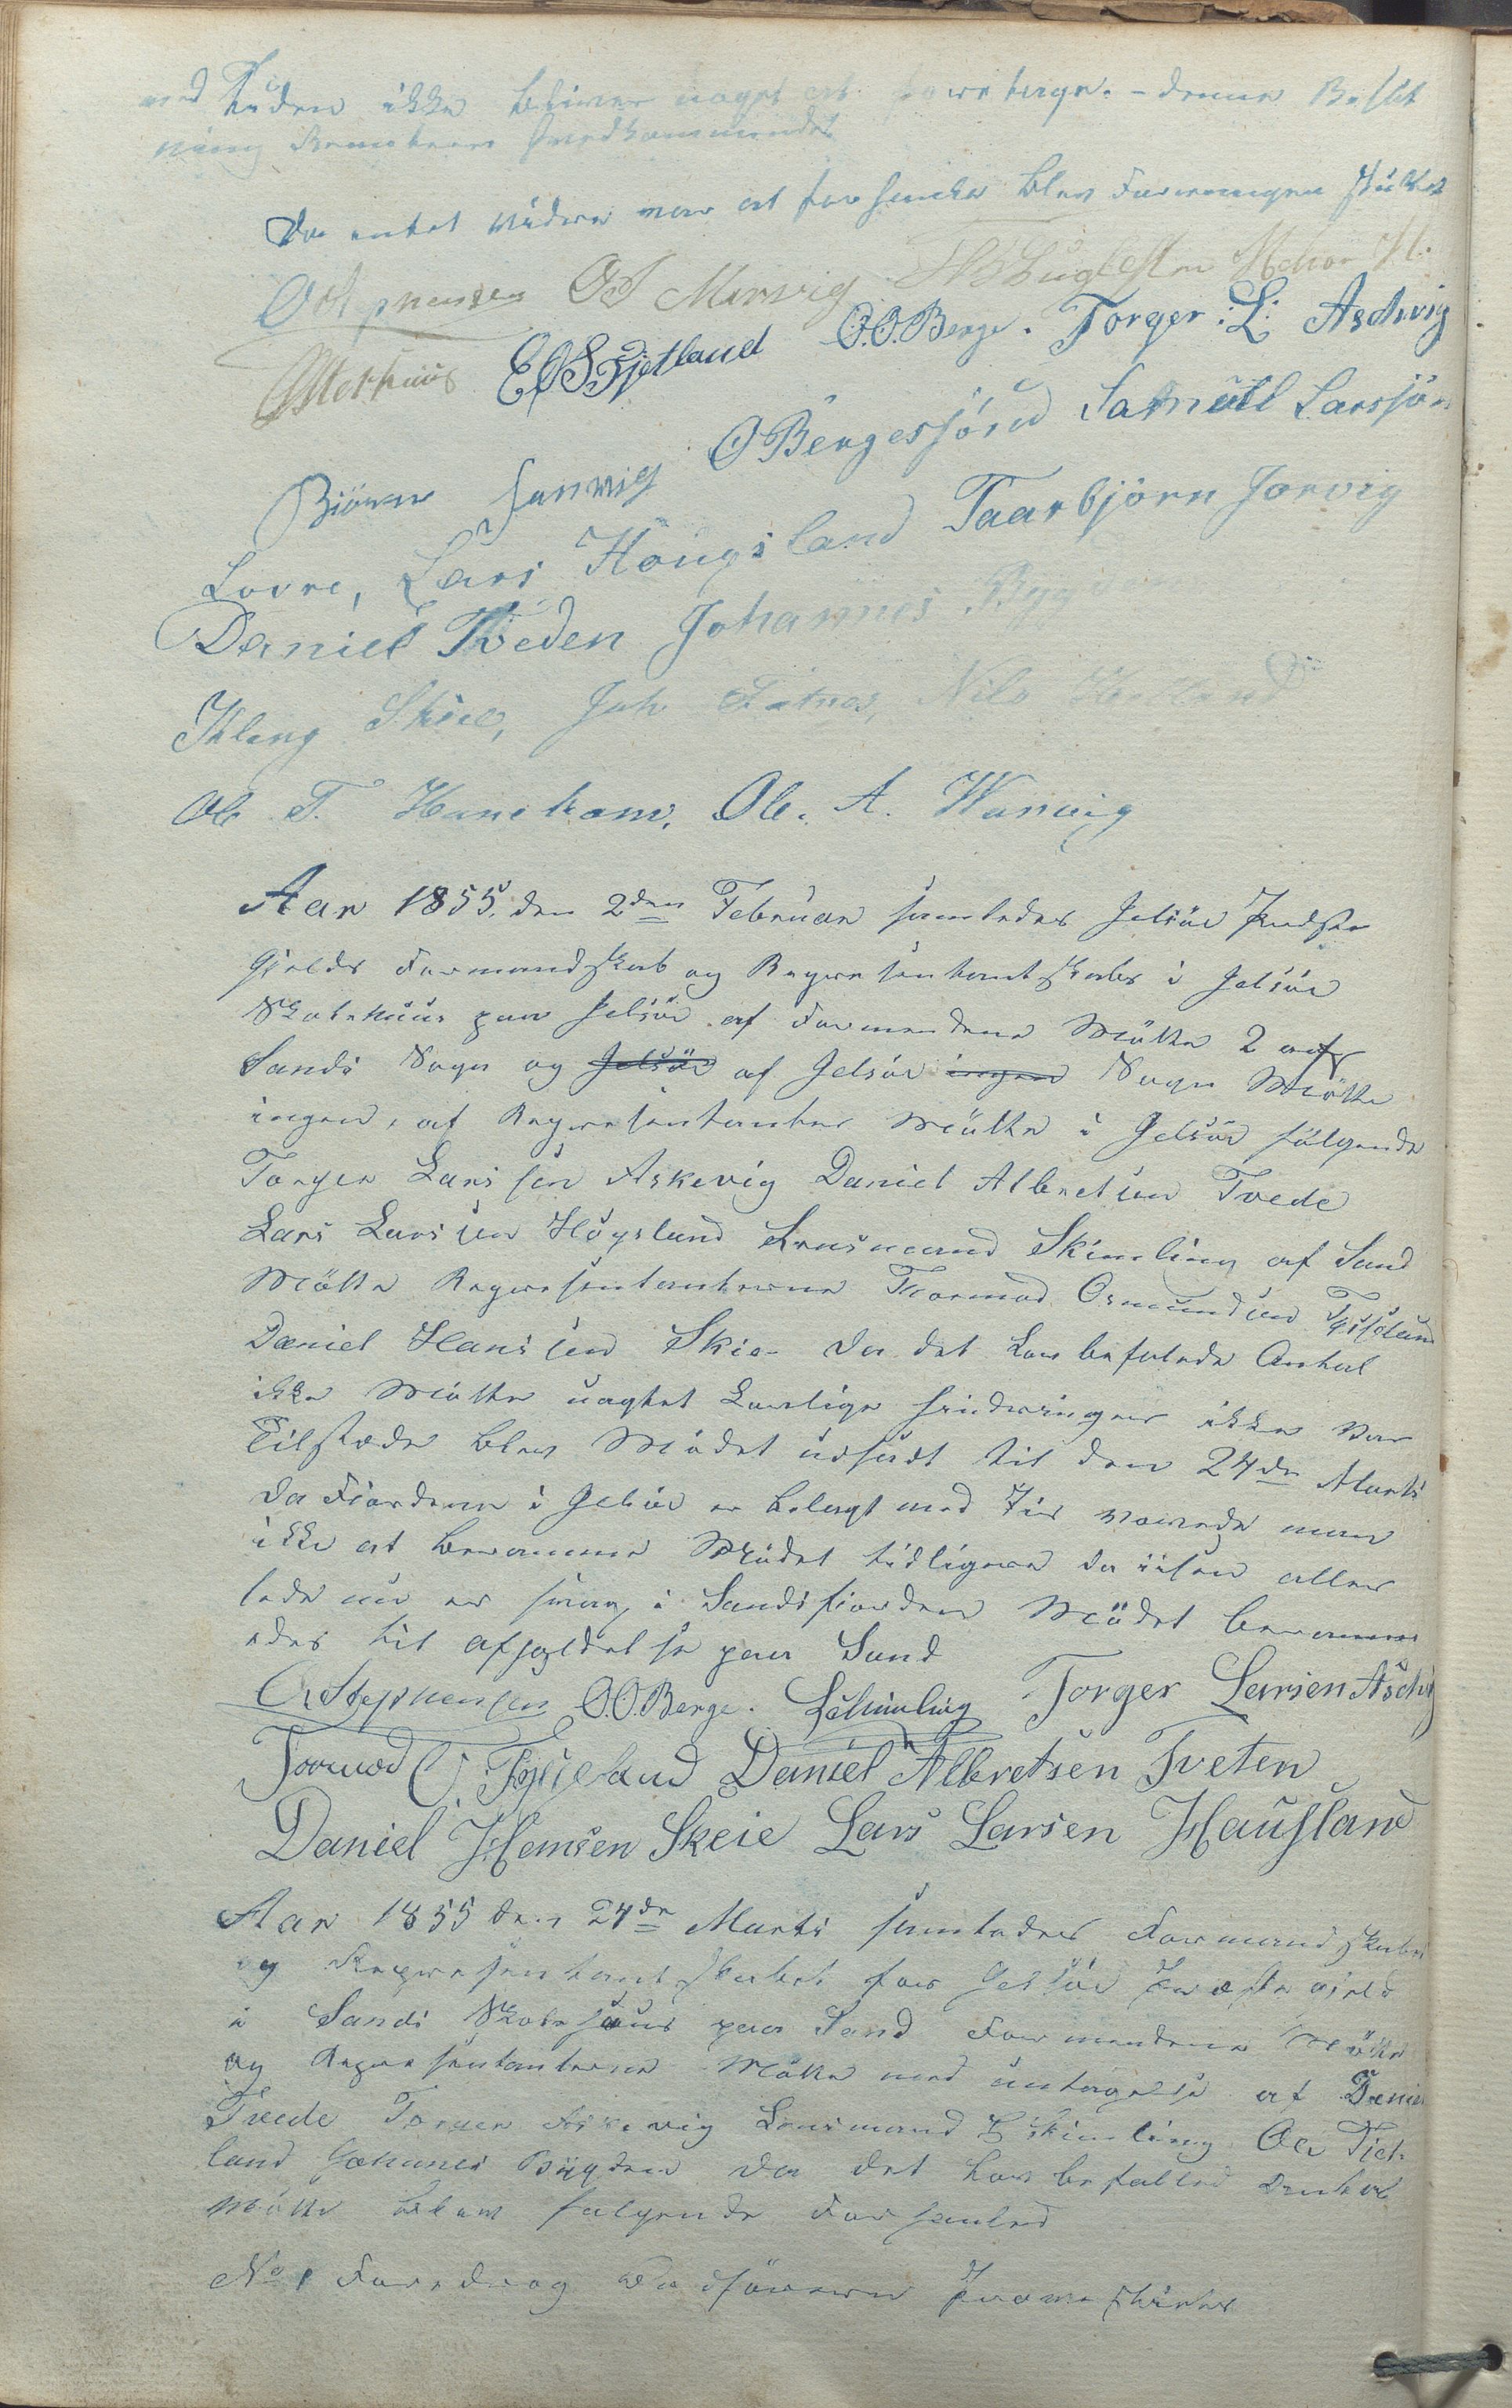 ved Tiden ikke bliver noget at foretage. - denne Beslut
ning vedkommende
Da intet videre var at forhandle blev Forretningen sluttet
O Stephensen OJ Mirvig
Osterhuus EOS Fjetland O.O. Berge. Torger :L: Aschvig
Biørn Janvig O Bergesjörd Samuel Larssön
Lovre, Lars Högsland Taarbjörn Jorvig
Daniel Tveden Johannes
Skeie, Joh Nils
Ole T. Hanekam, Ole. A. Warvig
Aar 1855, den 2den Februar samledes Jelsöe Præste
gjelds Formandskab og Repræsentantskaber i Jelsöe
Skolehuus paa Jelsöe. af Formændene Mötte 2 af
Sands Sogn og Jelsöe af Jelsöe ingen Sogn Mötte
ingen, af Repræsentanter Mötte i Jelsöe fölgende
Torger Larssen Askevig Daniel Albretsen Tvede
Lars Larssen Högsland Lensmand Skimling af Sand
Mötte Repræsentanterne Tormod Osmundsen
Daniel Hanssen Skie - da det Lov befalede Antal
ikke Mötte uagtet Lovlige hindringer ikke var
Tilstede blev Mödet udsadt til den 24de Marts
da Fiordene i Jelsöe er belagt med Iis vovede man
ikke at beramme Mödet tidligere da iisen aller
lede nu er svag i Sandsfiorden Mödet beramm
edes til afholdelse paa Sand
O Stephensen O.O. Berge. Schimling Torger Larsen Aschvig
Tormod O. Daniel Albretsen Tveten
Daniel Hansen Skeie Lars Larsen Haugland
Aar 1855 den 24de Marts samledes Formandskabet
og Repræsentantskabet for Jelsöe Præstegield
i Sands Skolehuus paa Sand Formændene Mötte
og Repræsentanterne Mötte med untagelse af Daniel
Tvede Torger Askevig Lensmand Skimling Ole Fiet-
land Johanes Bygden da det Lov befalled Antal
Mötte blev fölgende Forhanled
No 1 Foredrog Ordföreren